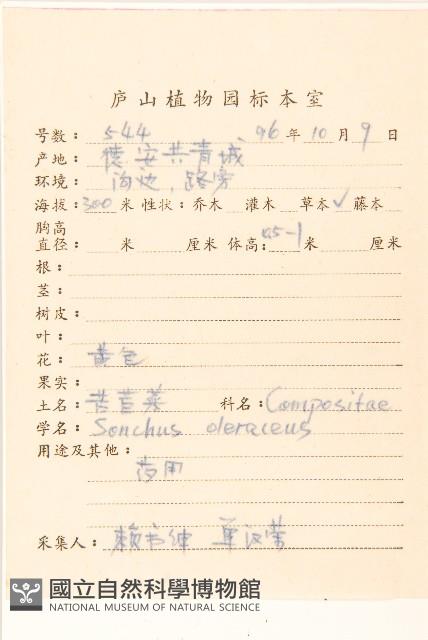 庐山植物园标本室
号数: 544 96年10月9日
产地: 德安共青城
环境: 沟边, 路旁
海拔: 300米 性状: 乔木 灌木 草本✓ 藤本
胸高
直径: 米 厘米 体高: 0.5-1米 厘米
根:
茎:
树皮:
叶:
花: 黄色
果实:
土名: 苦苣菜 科名: Compositae
学名: Sonchus oleraceus
用途及其他:
药用
采集人: 赖书绅 单汉荣
國立自然科學博物館
NATIONAL MUSEUM OF NATURAL SCIENCE